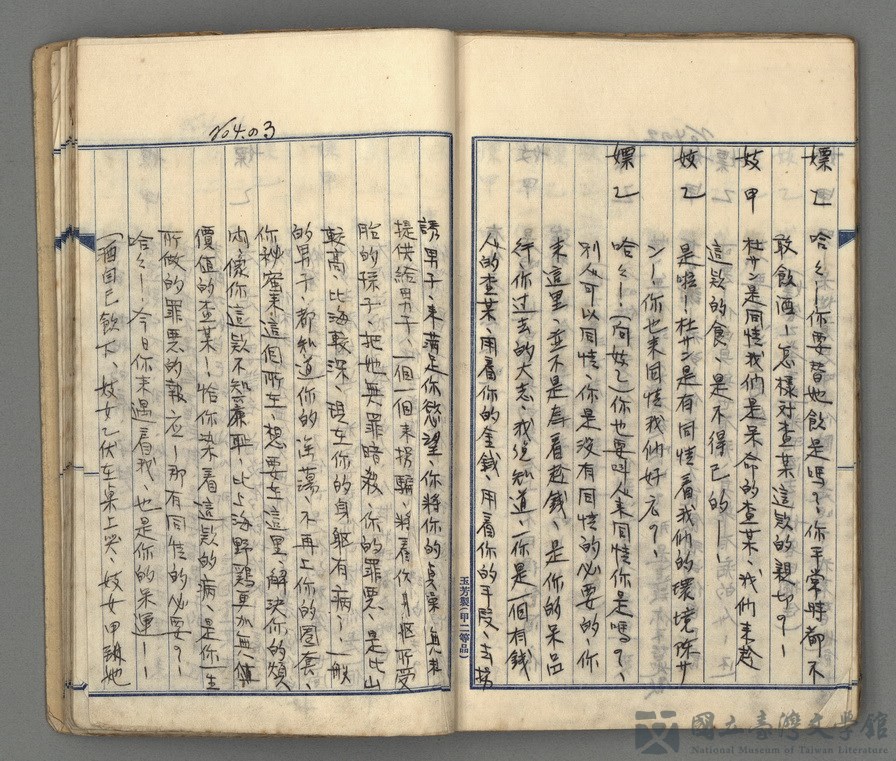 嫖乙 哈々！你要替她飲是嗎？、你平常時都不
敢飲酒！怎樣对查某這款的親切？！
妓甲 杜サン是同情我們是呆命的查某、我們来趁
這款的食、是不得已的！！
妓乙 是啦！杜サン是有同情着我們的環境 陈サ
ン！你也来同情我們好広？、
嫖乙 哈々！(向妓乙)你也要叫人来同情你是嗎？、
別人可以同情、你是沒有同情的必要的 你
来這里、並不是為着趁錢、是你的呆品
行、你过去的大志、我总知道、你是一個有錢
人的查某、用着你的金錢、用着你的手段、去拐
No4.の3
誘男子、来滿足你慾望、你將你的貞操 無来
提供給男子、一個一個来拐騙 將着你身軀所受
胎的孫子、把她無罪暗殺、你的罪悪、是比山
較高、比海較深、現在你的身軀有病？、一般
的男子、都知道你的淫蕩 不再上你的圈套、
你秘蜜来這個所在、想要在這里、解决你的煩
悶 像你這款不知廉恥、比上海野鷄更加無值
價值的查某！恰你染着這款的病、是你一生
所做的罪悪的報应！那有同情的必要？！
哈々！今日你来遇着我、也是你的呆運！！
(酒自己飲下、妓女乙伏在桌上哭、妓女甲 她
玉芳製(甲二等品)
國立臺灣文學館
National Museum of Taiwan Literature